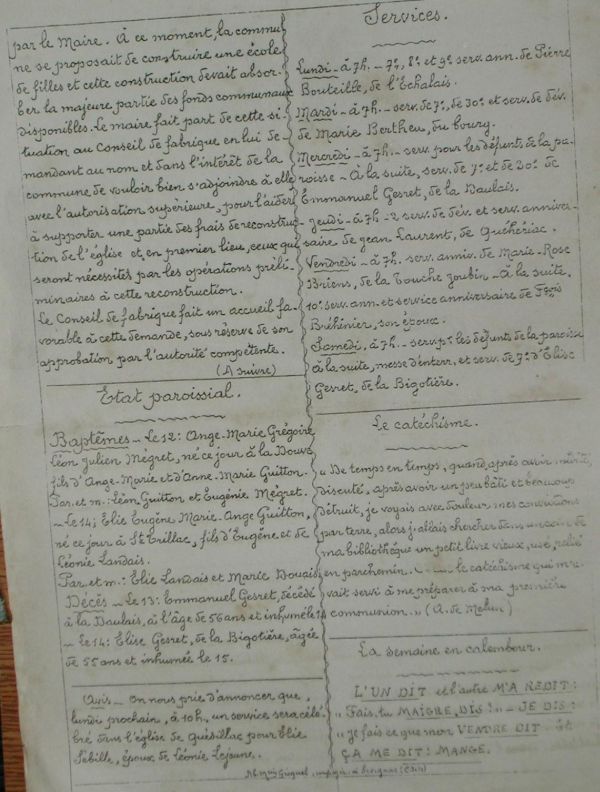 par le Maire. À ce moment, la commu-
ne se proposait de construire une école
de filles et cette construction devait absor-
ber la majeure partie des fonds communaux
disponibles. Le maire fait part de cette si-
tuation au Conseil de fabrique en lui de-
mandant au nom et dans l'intérêt de la
commune de vouloir bien s'adjoindre à elle
avec l'autorisation supérieure, pour l'aider
à supporter une partie des frais de reconstruc-
tion de l'église et, en premier lieu, ceux qui
seront nécessités par les opérations préli-
minaires à cette reconstruction.
Le Conseil de fabrique fait un accueil fa-
vorable à cette demande, sous réserve de son
approbation par l'autorité compétente.
(A suivre)
Etat paroissial.
Baptêmes _ Le 12: Ange-Marie Grégoire
Léon Julien Mégret, né ce jour à la Douve
fils d'Ange-Marie et d'Anne-Marie Guitton.
Par. et m.: Léon Guitton et Eugénie Mégret.
_ Le 14; Elie Eugène Marie-Ange Guitton,
né ce jour à St Trillac, fils d'Eugène et de
Léonie Landais.
Par. et m.: Elie Landais et Marie Douais
Décès _ Le 13: Emmanuel Gesret, décédé
à la Daulais, à l'âge de 56 ans et inhumé le 14
_ Le 14: Elise Gesret, de la Bigotière, âgée
de 55 ans et inhumée le 15.
Avis _ On nous prie d'annoncer que,
lundi prochain, à 10h, un service sera célé-
bré dans l'église de Québillac pour Elie
Sébille, époux de Léonie Lejeune.
Services.
Lundi - à 7h. - 7e, 8e et 9e serv. ann. de Pierre
Bouteille, de l'Echalais.
Mardi - à 7h. - serv. de 7e, de 30e et serv. de dév.
de Marie Bertheu, du bourg.
Mercredi - à 7h. - serv. pour les défunts de la pa-
roisse - À la suite, serv. de 7e et de 30e de
Emmanuel Gesret, de la Daulais.
Jeudi - à 7h - 2 serv. de dév. et serv. anniver-
saire de Jean Laurent, de Quéhériac.
Vendredi - à 7h. - serv. anniv. de Marie-Rose
Briens, de la Touche Joubin - À la suite,
10e serv. ann. et service anniversaire de Frçois
Bréhinier, son époux.
Samedi, à 7h - serv. pr. les défunts de la paroisse
à la suite, messe d'enterr. et serv. de 7e d'Elise
Gesret, de la Bigotière.
Le catéchisme.
« De temps en temps, quand, après avoir
discuté, après avoir un peu bâti et beaucoup
détruit, je voyais avec douleur mes convictions
par terre, alors j'allais chercher dans un coin de
ma bibliothèque un petit livre vieux, usé, relié
en parchemin. le catéchisme qui m'a-
vait servi à me préparer à ma première
communion. » (A. de Melun)
La semaine en calembour.
L'UN DIT et l'autre M'A REDIT:
« Fais, tu MAIGRE, DIS!» _ JE DIS:
« je fais ce que mon VENDRE DIT
ÇA ME DIT: MANGE.